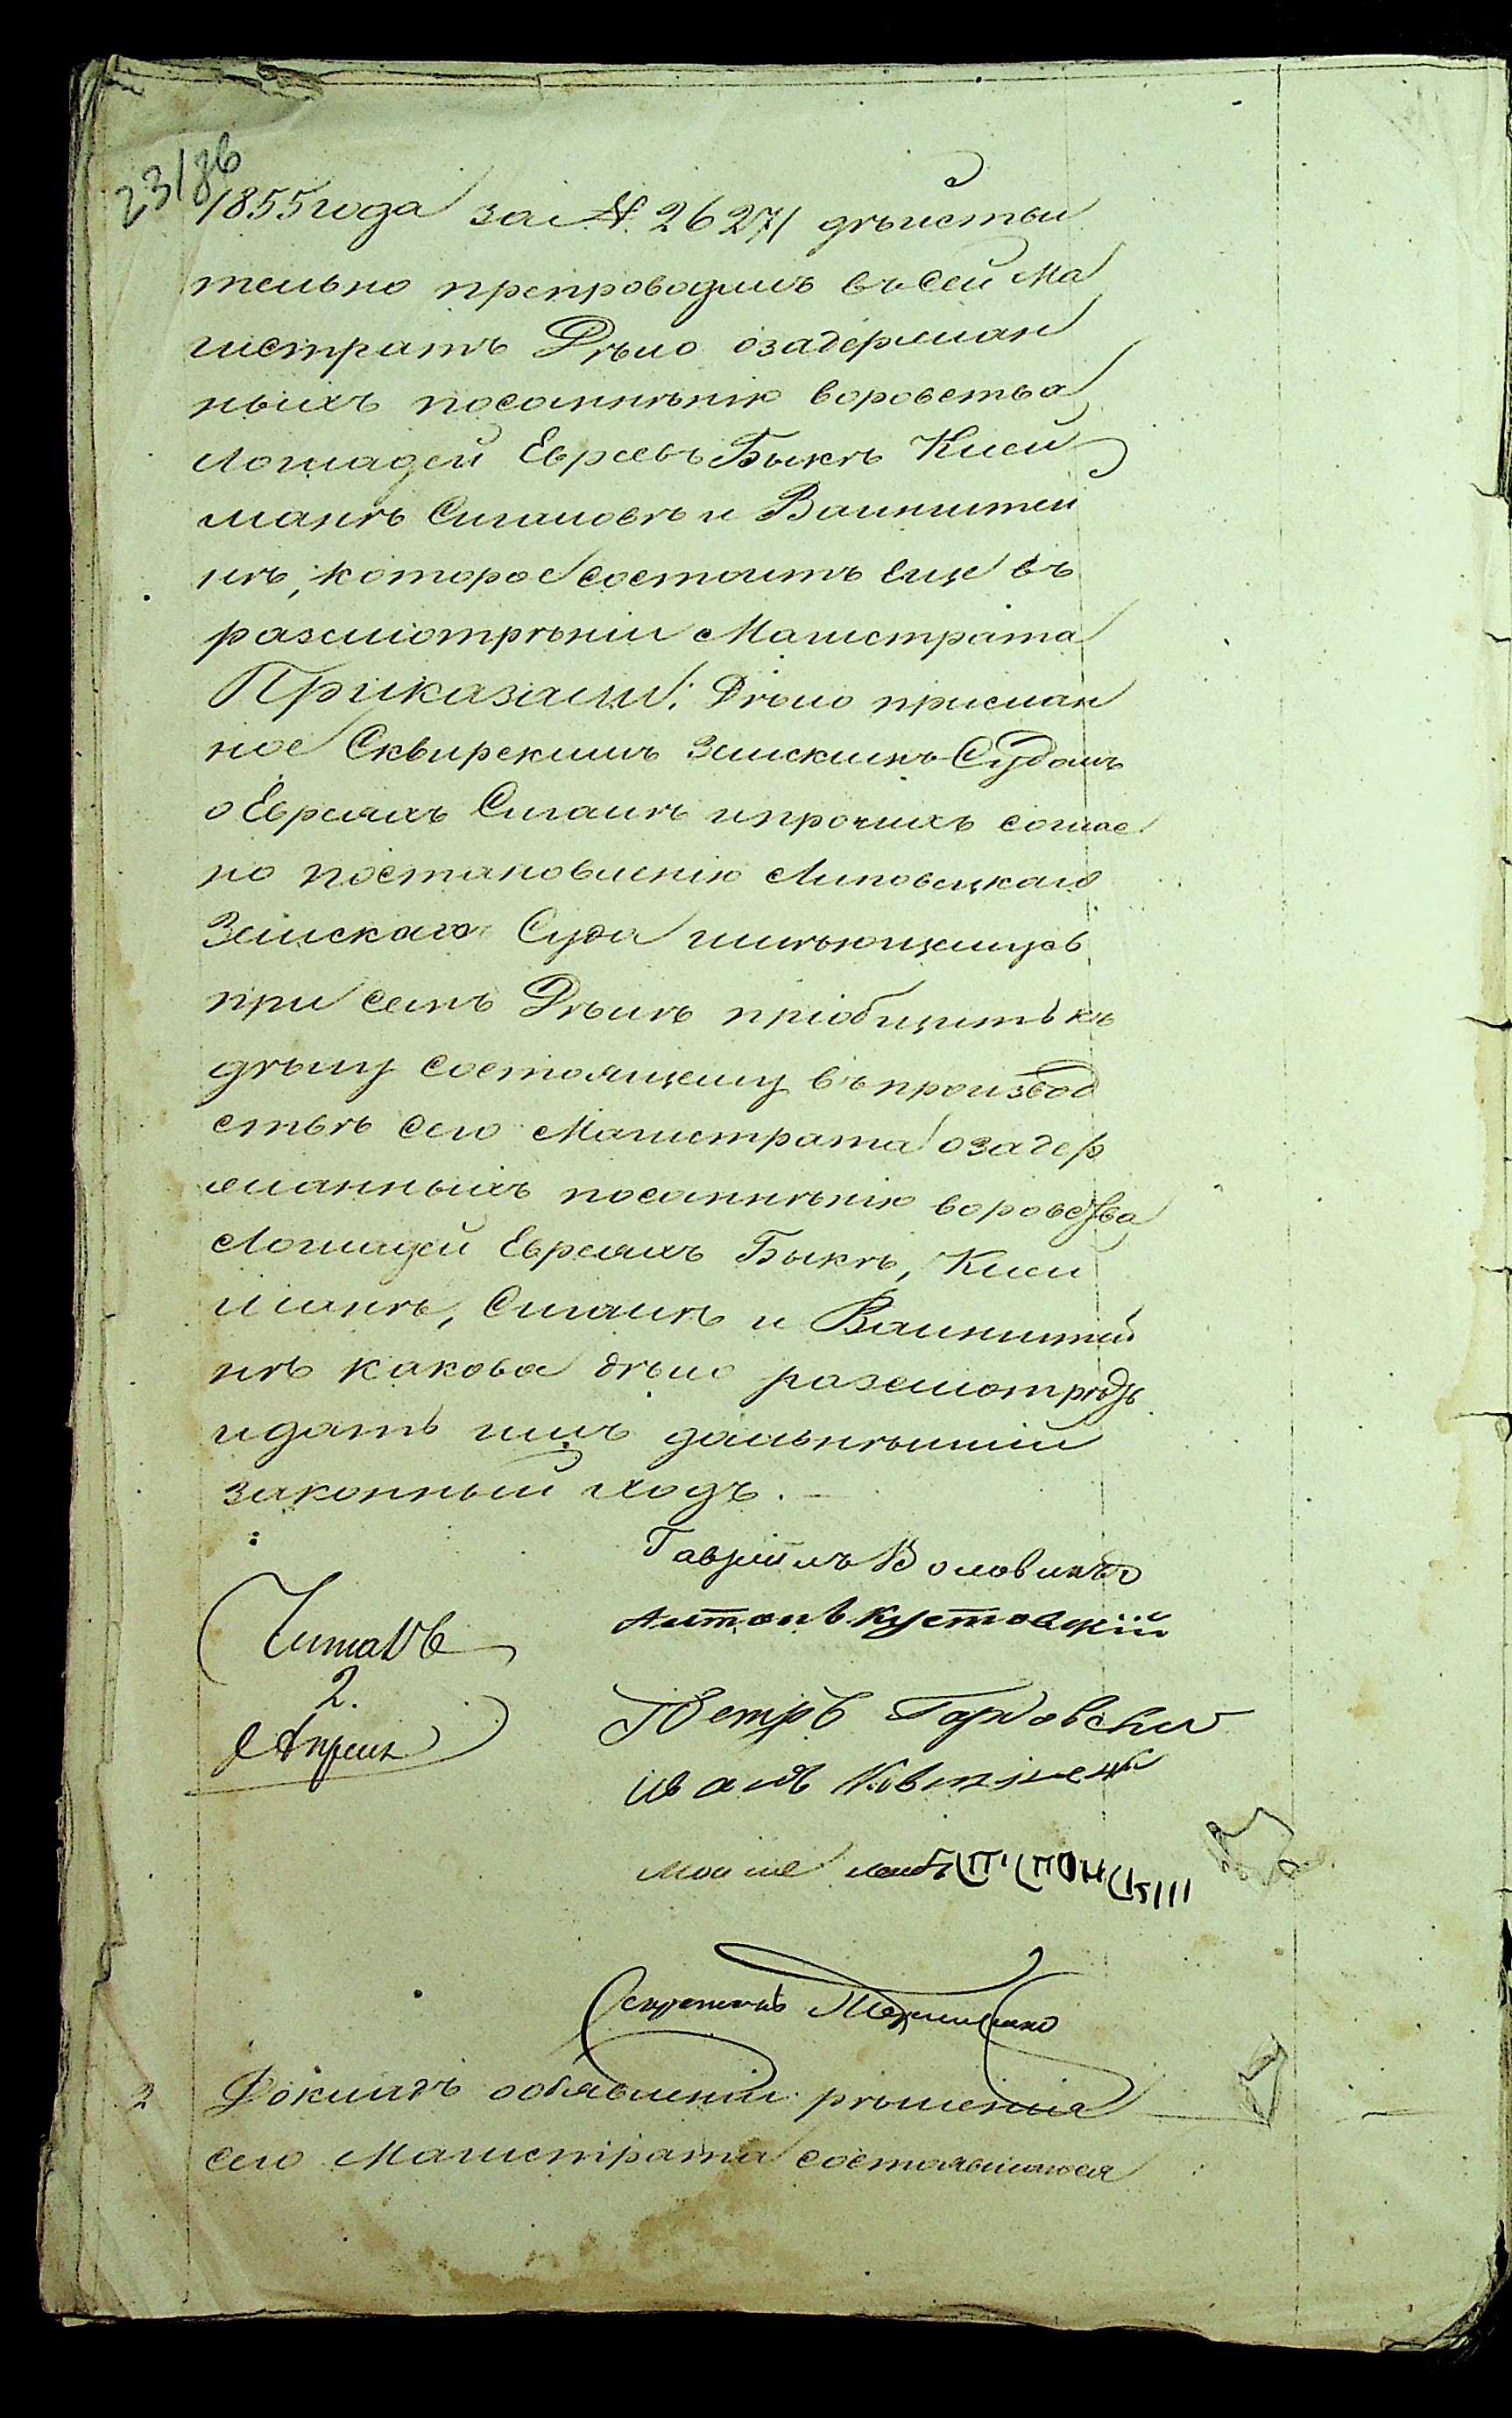 23/86
1855 года за № 26271 дѣистви
тельно препроводилъ въ сей Ма
гистратъ Дѣло о задержан
ныхъ по сомнѣнію воровства
Лошадей Евреевъ Быкѣ Клей
манѣ Сигаловѣ и Ваинштеи
нѣ, которое состоитъ еще въ
разсмотрѣніи Магистрата
Приказали: Дѣло прислан
ное Сквирскимъ Земскимъ Судомъ
о Евреяхъ Сигалѣ и прочихъ соглас
но постановленію Липовецкаго
Земскаго Суда имѣющемусь
при семъ Дѣлѣ пріобщить къ
дѣлу состоящему въ производ
ствѣ сего Магистрата о задер
жанныхъ по сомнѣнію воровства
Лошадей Евреяхъ Быкѣ, Клей
манѣ, Сигалѣ и Ваинштей
нѣ какова дѣло разсмотрѣть
и дать имъ дальнѣйшій
законный ходъ. —
Гаврiилъ Воловик
Антонъ Кустовскій
Читалъ
2.
Апреля
Петръ
Иванъ
Секретарь
2 Докладъ о объявленіи рѣшенія
сего Магистрата состоявшагося